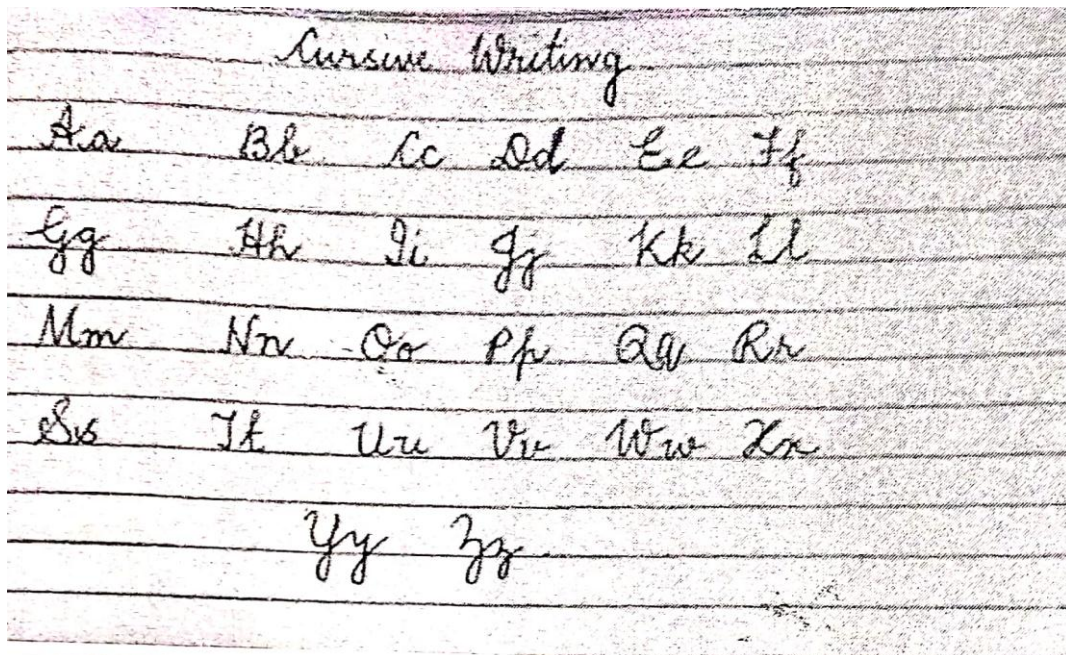 Cursive Writing
Aa Bb Cc Dd Ee Ff
Gg Hh Ii Jj Kk Ll
Mm Nn Oo Pp Qq Rr
Ss Tt Uu Vv Ww Xx
Yy Zz